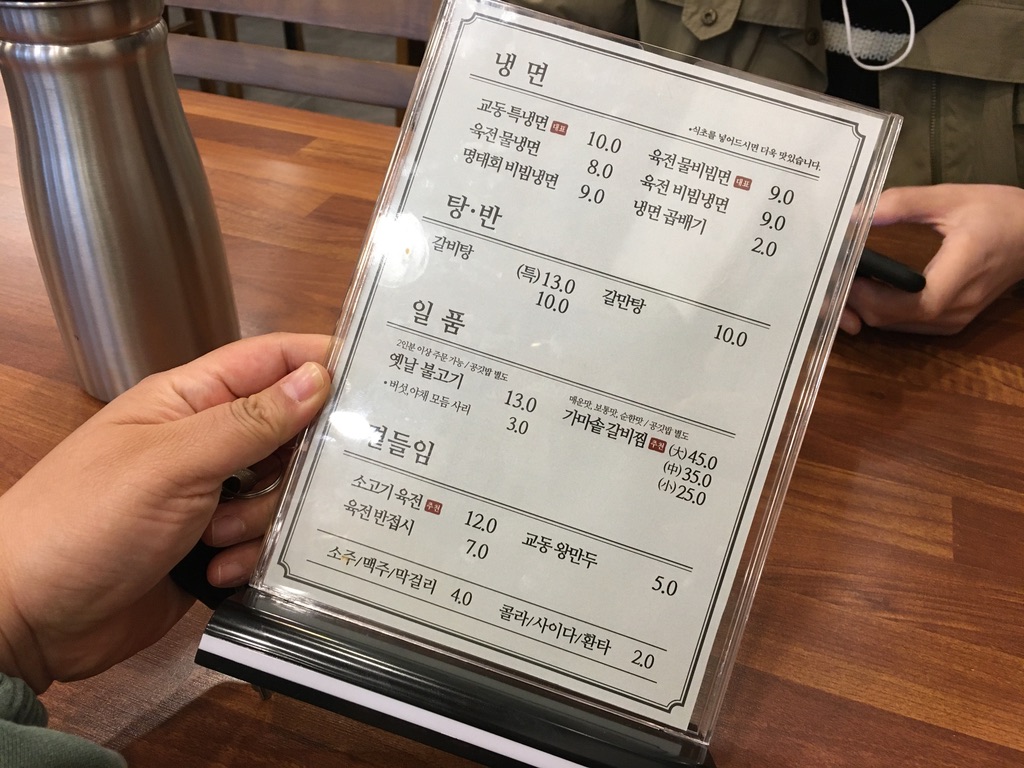 냉 면
•식초를 넣어드시면 더욱 맛있습니다.
교동 특냉면 대표 10.0
육전 물비빔면 대표 9.0
육전 물냉면 8.0
육전 비빔냉면 9.0
명태회 비빔냉면 9.0
냉면 곱배기 2.0
탕·반
갈비탕 (특)13.0
10.0
갈만탕 10.0
일 품
2인분 이상 주문 가능 / 공깃밥 별도
옛날 불고기 13.0
•버섯,야채 모듬 사리 3.0
매운맛, 보통맛, 순한맛 / 공깃밥 별도
가마솥 갈비찜 추천 (大)45.0
(中)35.0
(小)25.0
곁들임
소고기 육전 추천 12.0
육전 반접시 7.0
교동 왕만두 5.0
소주/맥주/막걸리 4.0
콜라/사이다/환타 2.0